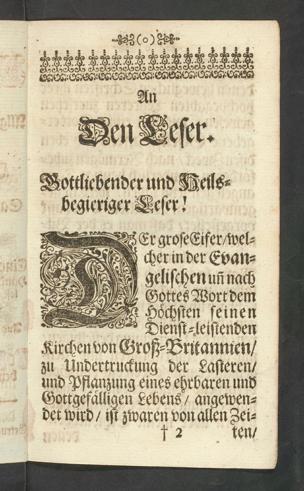 (o)
An
Den Leser.
Gottliebender und Heils-
begieriger Leser!
DEr grose Eifer/wel-
cher in der Evan-
gelischen uñ nach
Gottes Wort dem
Höchsten seinen
Dienst-leistenden
Kirchen von Groß-Britannien/
zu Undertruckung der Lasteren/
und Pflanzung eines ehrbaren und
Gottgefälligen Lebens/ angewen-
det wird/ ist zwaren von allen Zei-
† 2 ten/